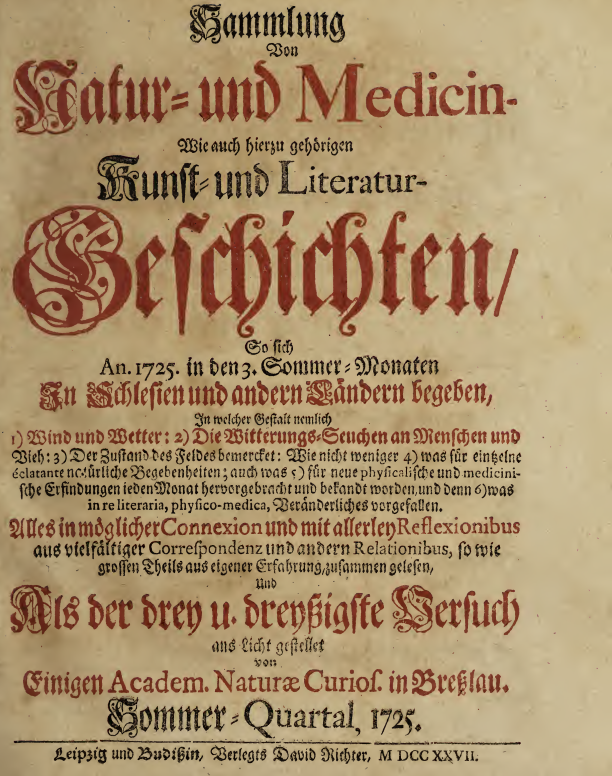 Sammlung
Von
Natur- und Medicin-
Wie auch hierzu gehörigen
Kunst- und Literatur-
Geschichten/
So sich
An. 1725. in den 3. Sommer-Monaten
In Schlesien und andern Ländern begeben,
In welcher Gestalt nemlich
1) Wind und Wetter: 2) Die Witterungs-Seuchen an Menschen und
Vieh: 3) Der Zustand des Feldes bemercket: Wie nicht weniger 4) was für eintzelne
éclatante natürliche Begebenheiten; auch was 5) für neue physicalische und medicini-
sche Erfindungen ieden Monat hervorgebracht und bekandt worden, und denn 6) was
in re literaria, physico-medica, Veränderliches vorgefallen.
Alles in möglicher Connexion und mit allerley Reflexionibus
aus vielfältiger Correspondenz und andern Relationibus, so wie
grossen Theils aus eigener Erfahrung, zusammen gelesen,
Und
Als der drey u. dreyßigste Versuch
ans Licht gestellet
von
Einigen Academ. Naturæ Curios. in Breßlau.
Sommer-Quartal, 1725.
Leipzig und Budißin, Verlegts David Richter, M DCC XXVII.